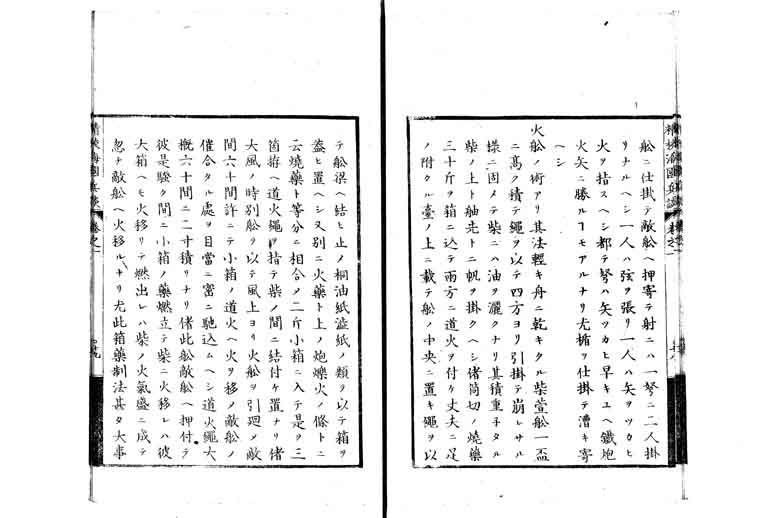 舩ニ仕掛テ敵舩ヘ押寄テ射ニハ一弩ニ二人掛
リナルヘシ一人ハ弦ヲ張リ一人ハ矢ヲツカヒ
火ヲ指スヘシ都テ弩ハ矢ツカヒ早キユヘ鐵炮
火矢ニ勝ルヿモアルナリ尤楯ヲ仕掛テ漕キ寄
ヘシ
火舩ノ術アリ其法輕キ舟ニ乾キタル柴萱舩一盃
ニ高ク積テ縄ヲ以テ四方ヨリ引掛テ崩レサル
様ニ固メテ柴ニハ油ヲ灑クナリ其積重子タル
柴ノ上ト舳先トニ帆ヲ掛クヘシ偖筒切ノ燒藥
三十斤ヲ箱ニ込テ兩方ニ道火ヲ付ケ丈夫ニ足
ノ附タル臺ノ上ニ載テ舩ノ中央ニ置キ繩ヲ以
精挍海國兵談 巻之一
テ舩梁ヘ結ヒ止ノ桐油紙澁紙ノ類ヲ以テ箱ヲ
蓋ヒ置ヘシ又別ニ火藥ト上ノ炮爍火ノ條トニ
云燒藥ト等分ニ相合メ二斤小箱ニ入テ是ヲ三
箇拵ヘ道火繩ヲ指テ柴ノ間ニ結付ケ置ナリ偖
大風ノ時別舩ヲ以テ風上ヨリ火舩ヲ引廻メ敵
間六十間許ニテ小箱ノ道火ヘ火ヲ移メ敵舩ノ
催合タル處ヲ目當ニ密ニ馳込ムヘシ道火繩大
概六十間ニ二寸積リナリ偖此舩敵舩ヘ押付テ
彼是騒ク間ニ小箱ノ藥燃立テ柴ニ火移レハ彼
大箱ヘモ火移リテ燃出レハ柴ノ火氣盛ニ成テ
忽チ敵舩ヘ火移ルナリ尤此箱藥制法甚タ大事